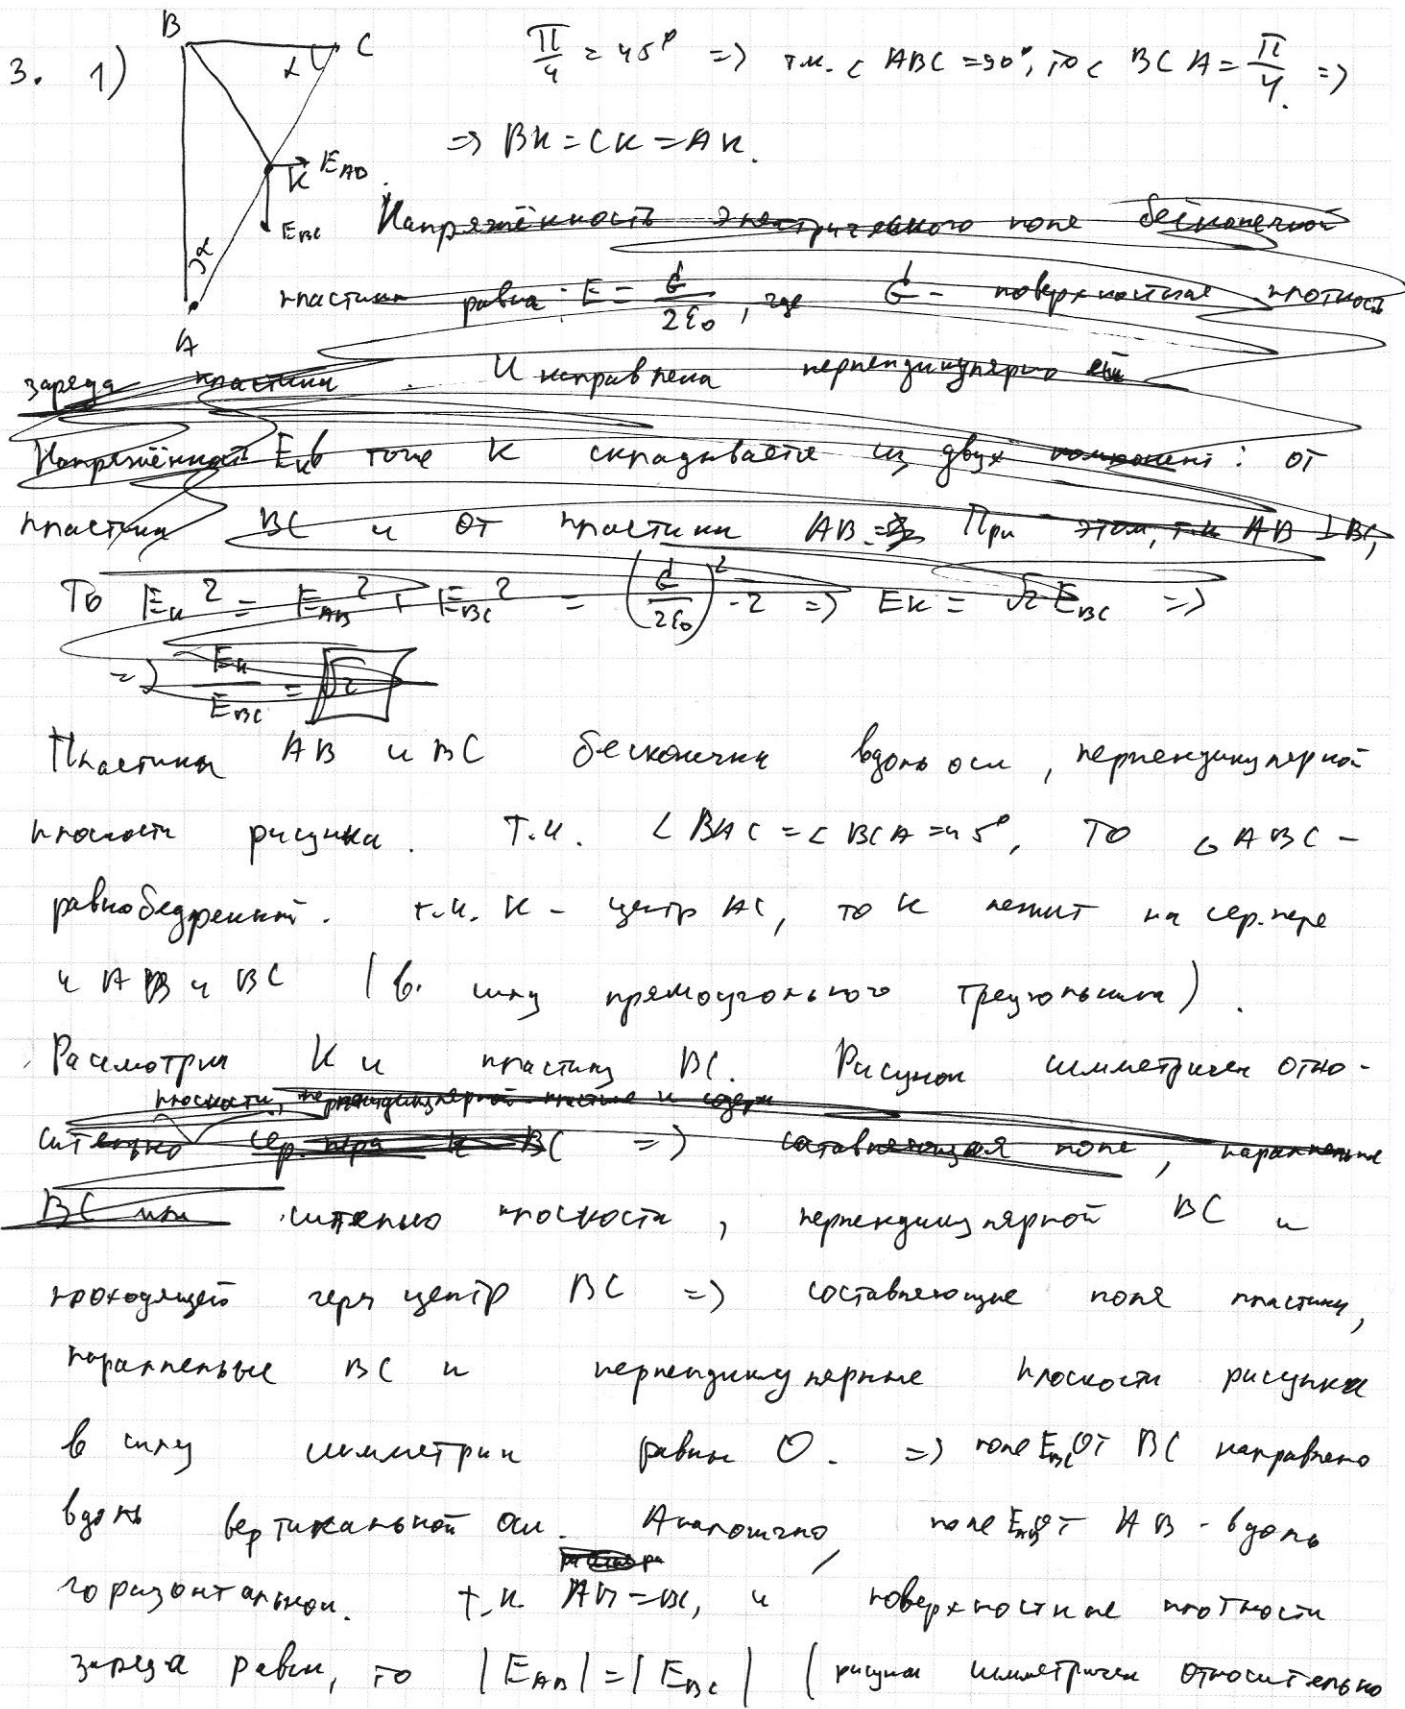 3. 1)
B
C
α
K
E_AB
E_BC
α
A
π/4 = 45° => т.к. < ABC = 90°, то < BCA = π/4. =>
=> BK = CK = AK.
Напряжённость электрического поле бесконечной
пластин равна: E = σ/2ε₀, где σ - поверхностная плотность
заряда пластины. И направлена перпендикулярно ей
Напряжённость E_K в точке K складывается из двух компонент: от
пластин BC и от пластини AB => При этом, т.к AB ⊥ BC,
То E_K² = E_AB² + E_BC² = (σ/2ε₀)² · 2 => E_K = √2 E_BC =>
=> E_K/E_BC = √2
Пластины AB и BC бесконечны вдоль оси, перпендикулярной
плоскости рисунка. Т.к. ∠BAC = ∠BCA = 45°, то △ABC -
равнобедренный. т.к. K - центр AC, то K лежит на сер.пере
к AB и BC (в силу прямоугольного треугольника).
Рассмотрим K и пластину BC. Рисунок симметричен отно-
плоскости, перпендикулярной пластине и содерж
сительно сер. пера к BC => составляющая поле, параллельные
BC или сительно плоскости, перпендикулярной BC и
проходящей через центр BC => составляющие поля пластины,
параллельные BC и перпендикулярные плоскости рисунка
в силу симметрии равны 0. => поле E_BC от BC направлено
вдоль вертикальной оси. Аналогично, поле E_AB от AB - вдоль
горизонтальной. т.к. AB = BC, и поверхностные плотности
заряда равны, то |E_AB| = |E_BC| (рисунок симметричен относительно